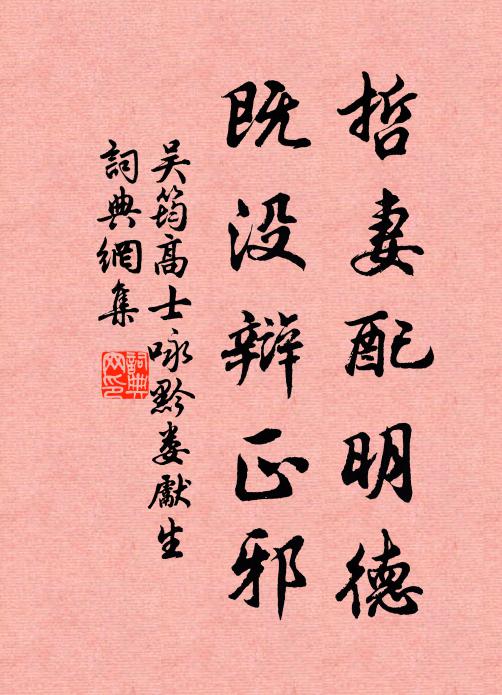 哲妻配明德
既没辯正邪
吳筠高士咏黔娄獻生
詞典網集
詞典网印